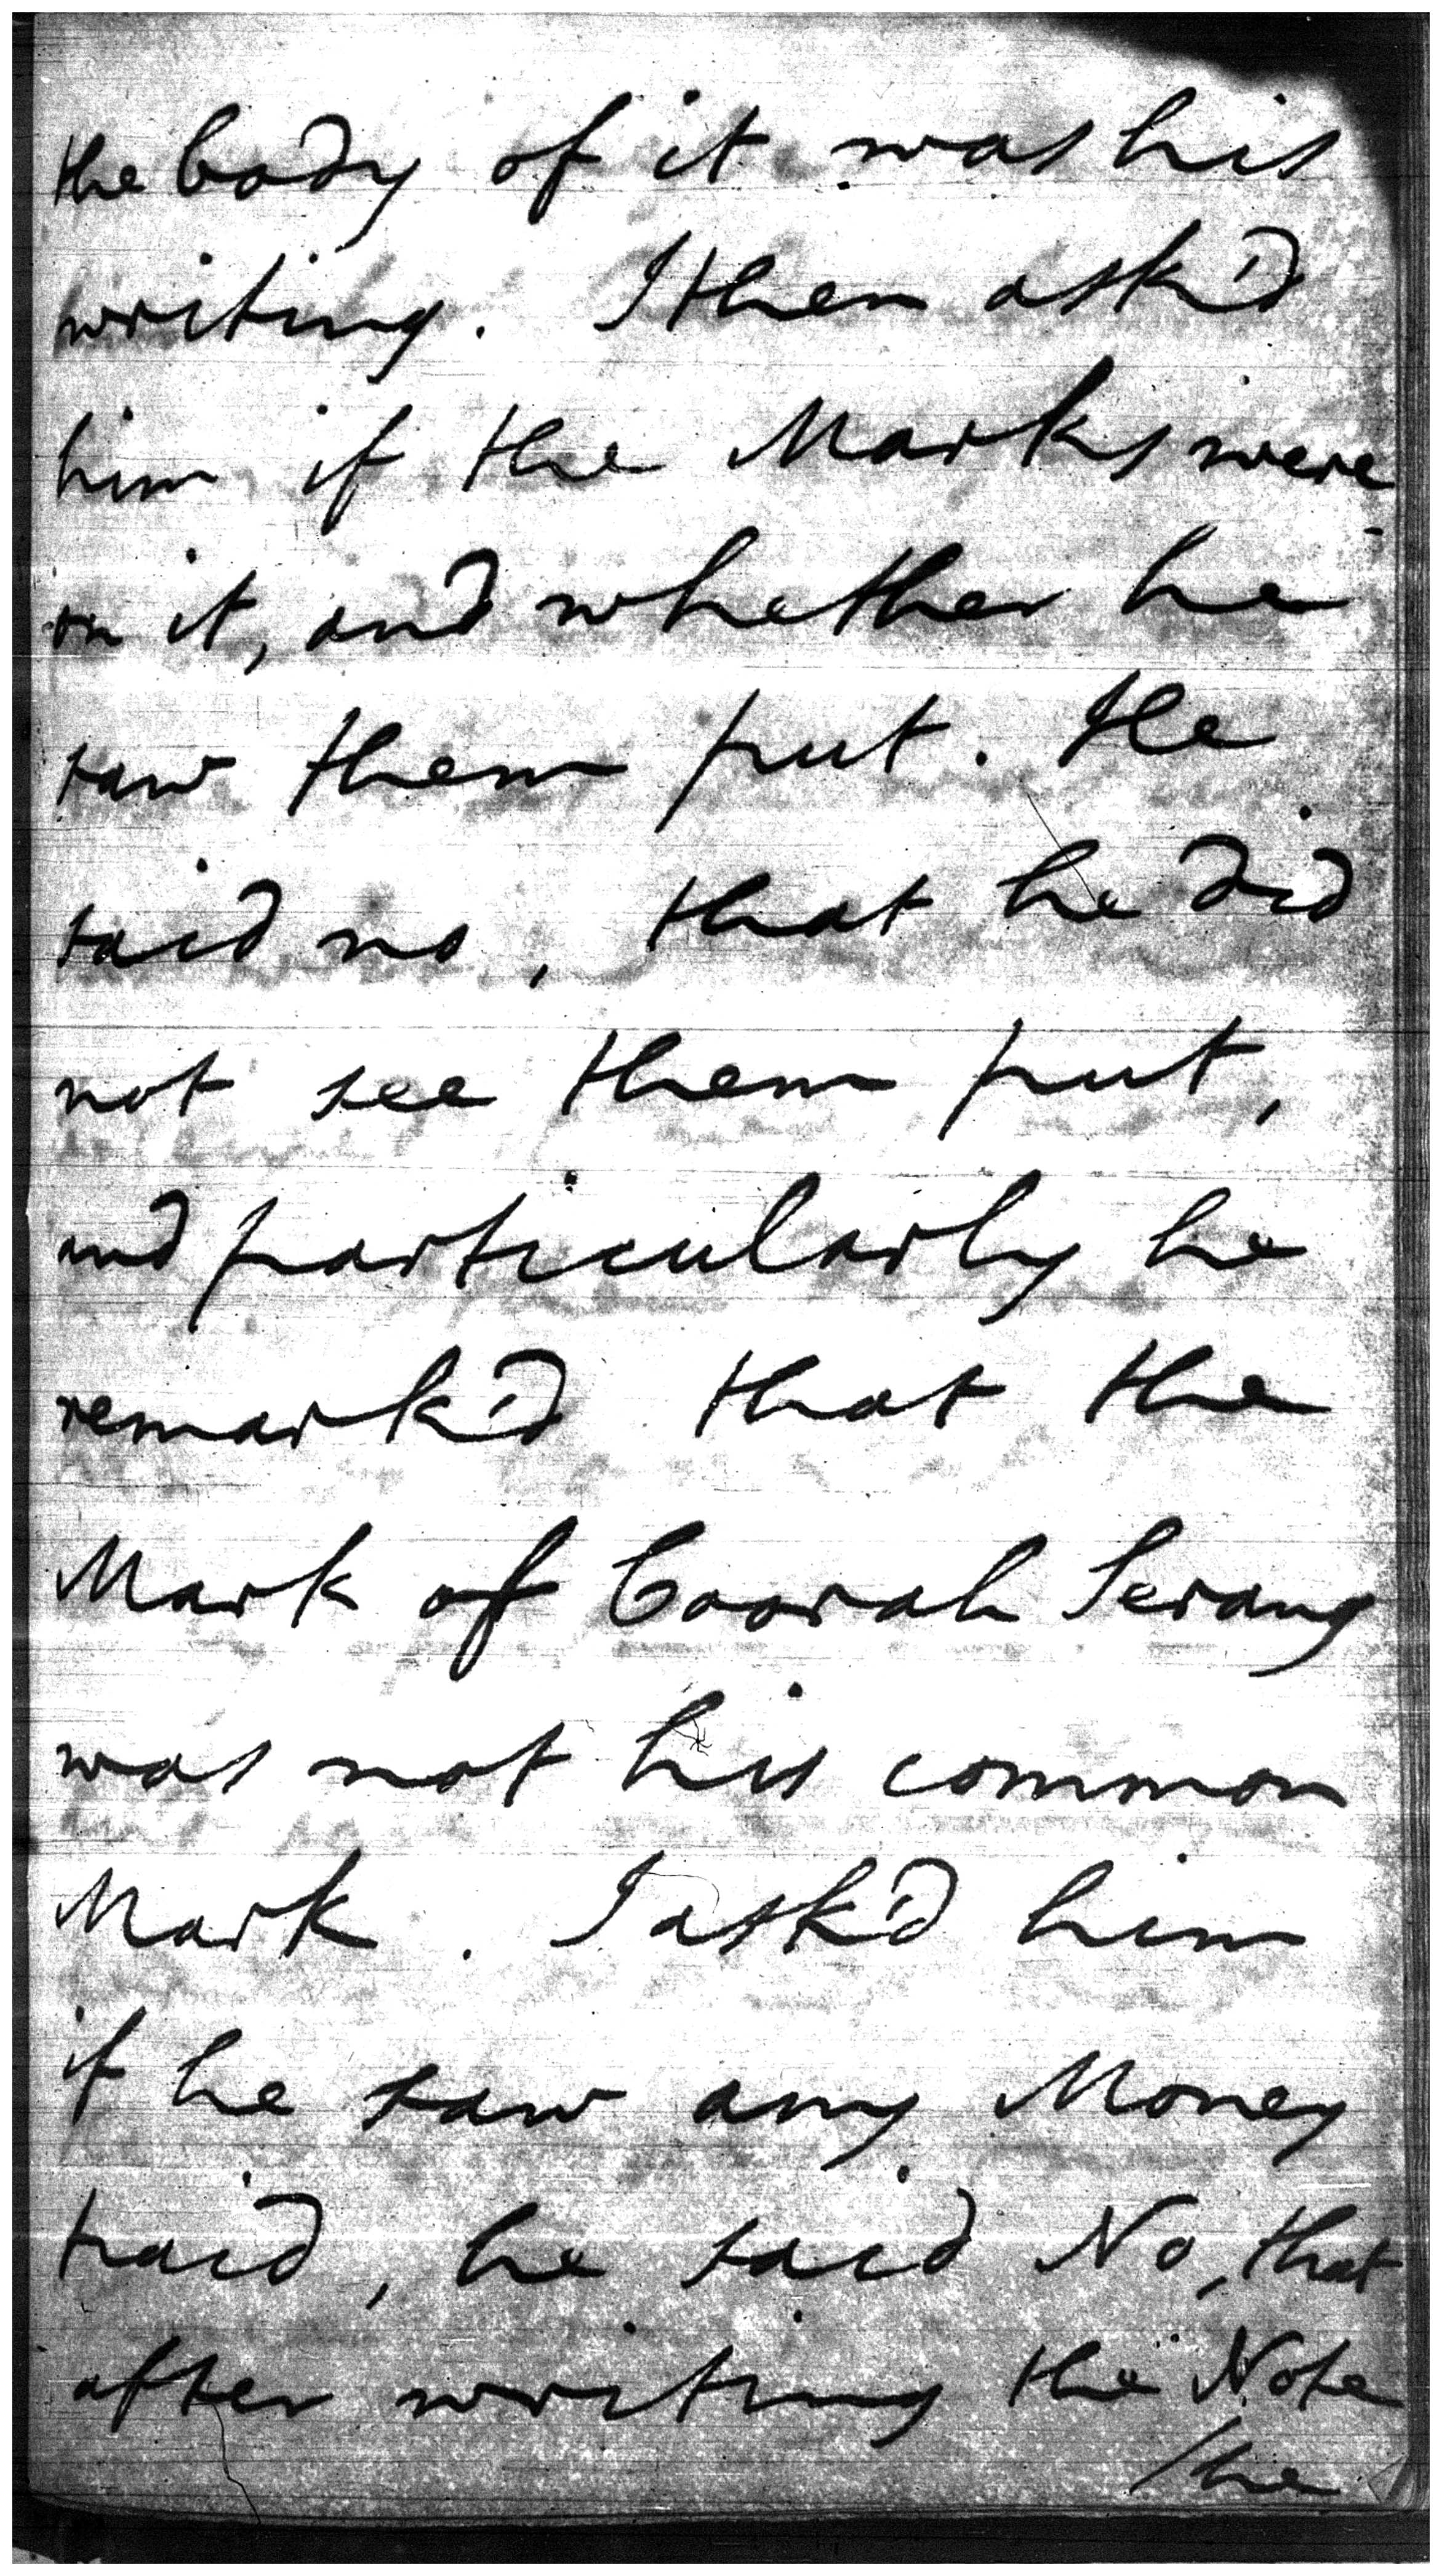 the body of it was his
writing. I then ask'd
him if the Marks were
on it, and whether he
saw them put. He
said no, that he did
not see them put,
and particularly he
remark'd that the
Mark of Coorah Serang
was not his common
Mark. I ask'd him
if he saw any Money
paid, he said No, that
after writing the Note
/he